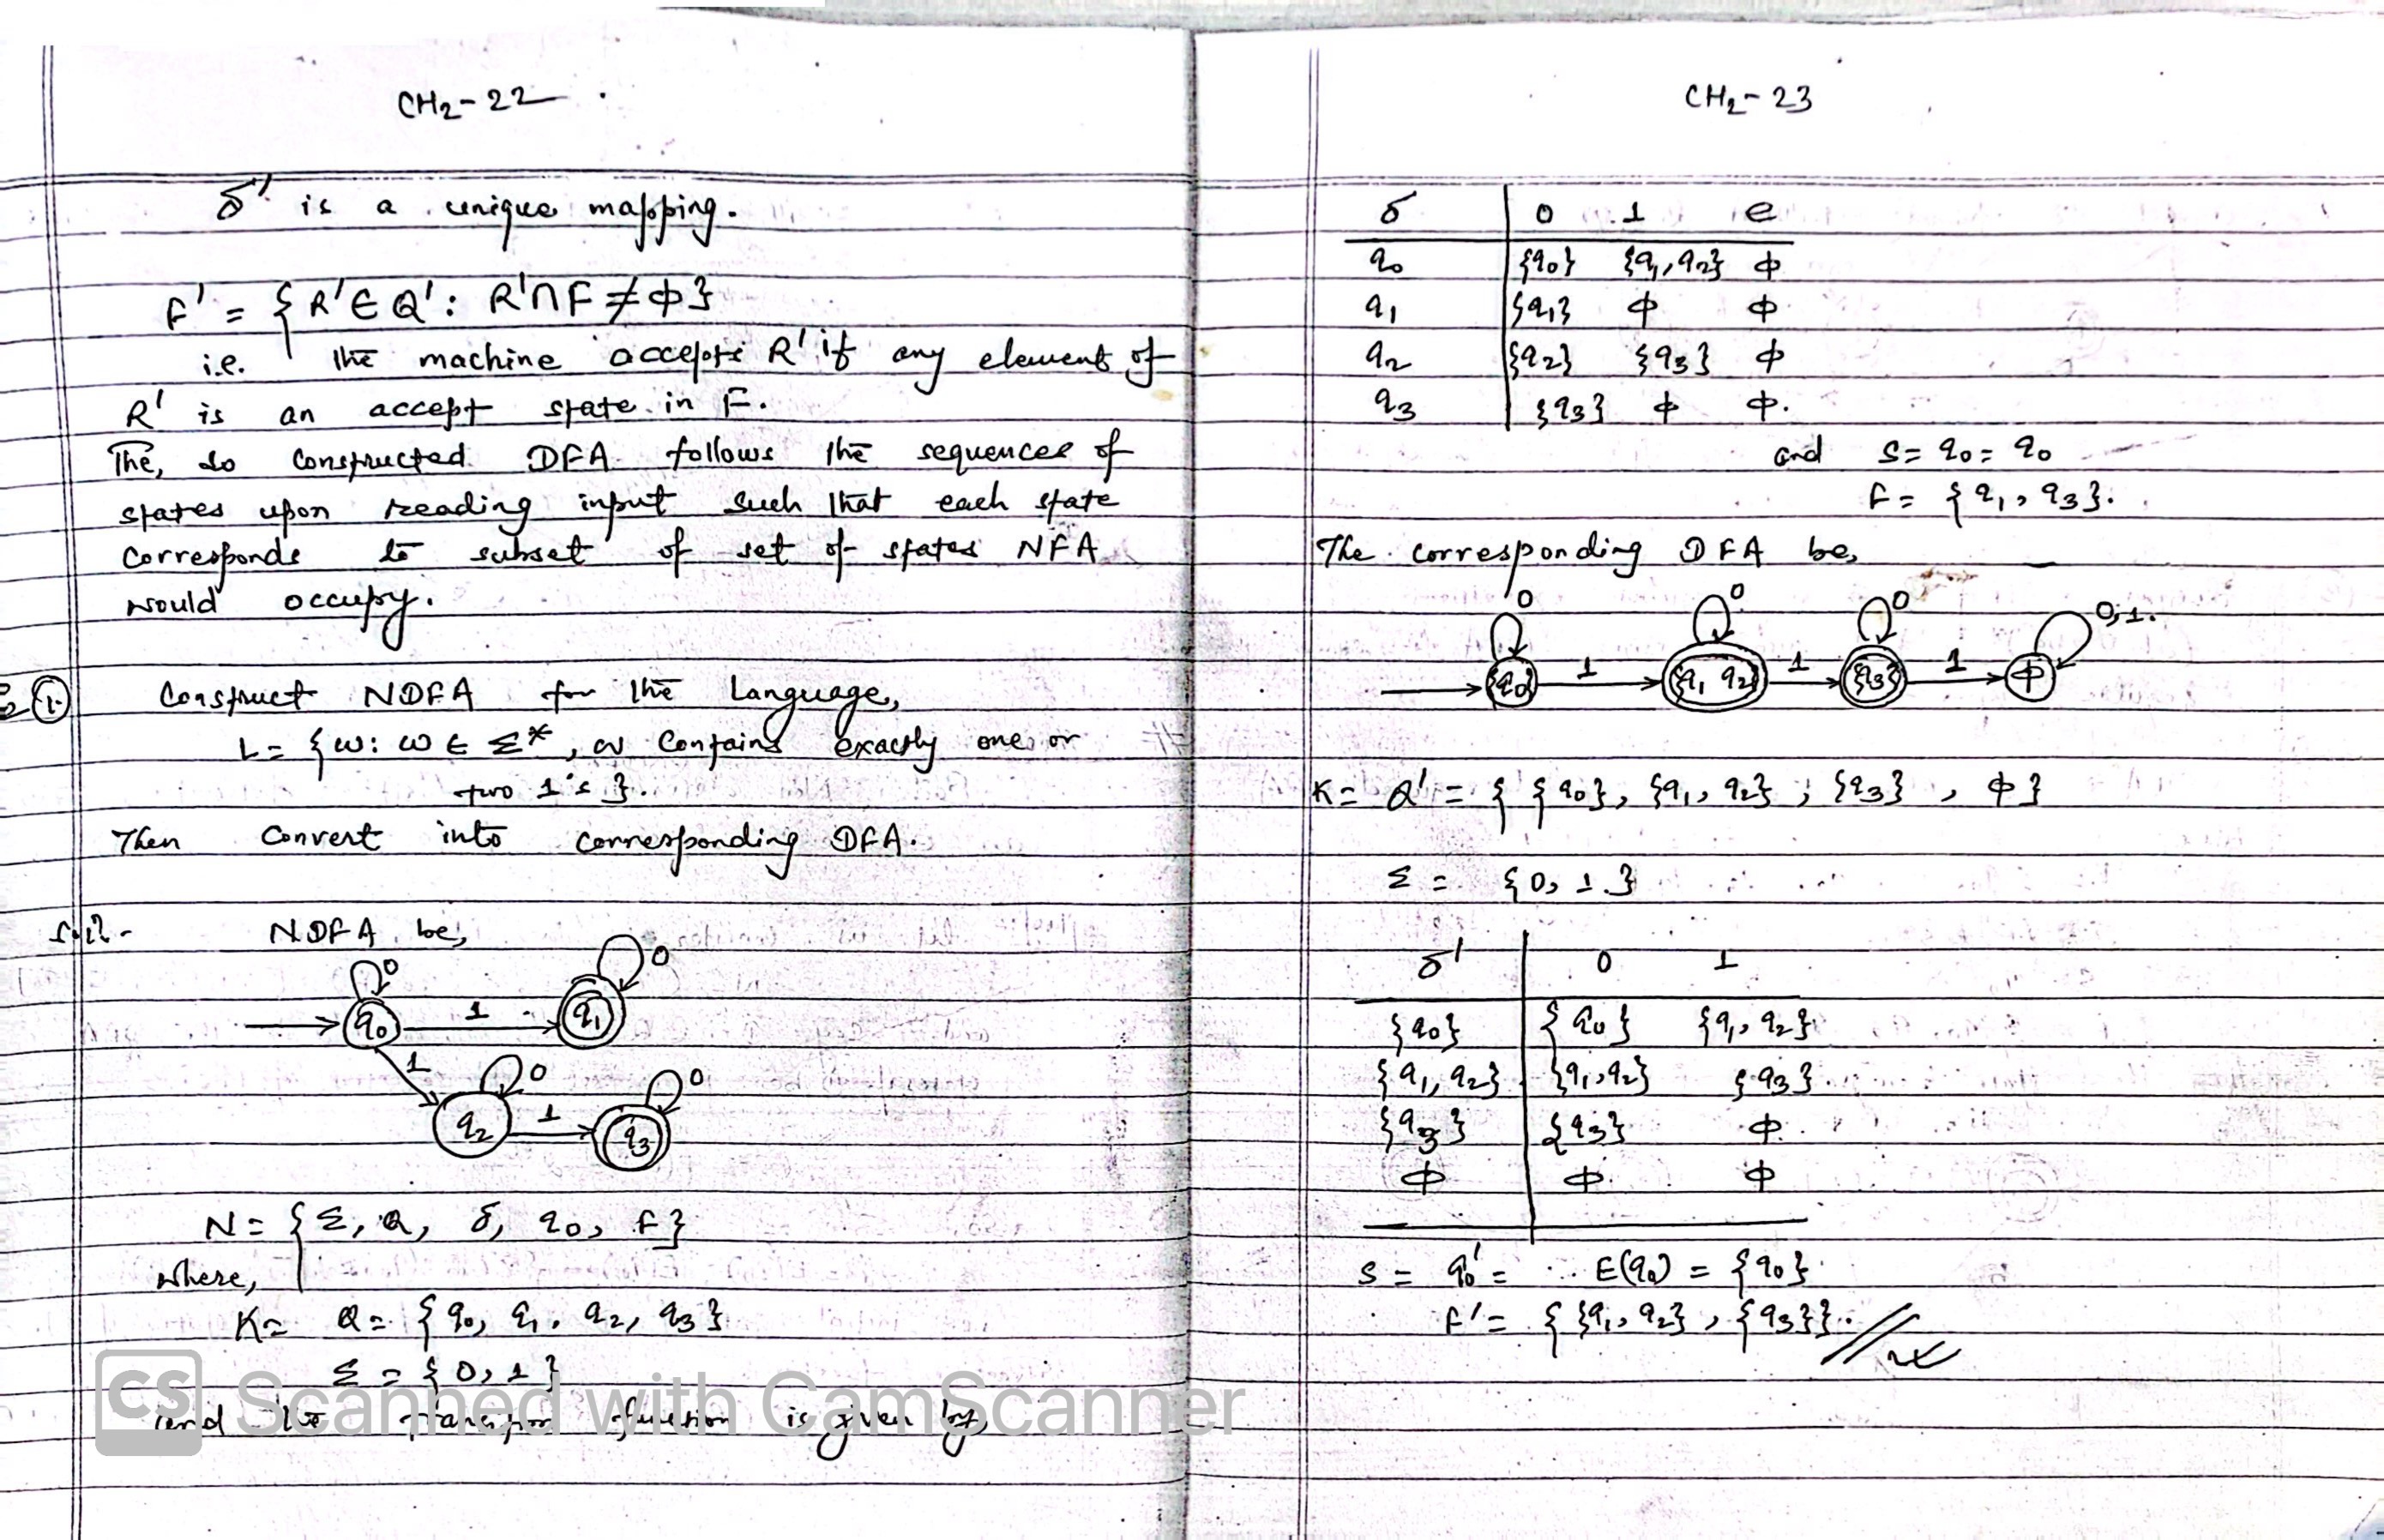 CH2-22
δ' is a unique mapping.
F' = { R' ∈ Q' : R' ∩ F ≠ ϕ }
i.e. the machine accepts R' if any element of
R' is an accept state in F.
The, so constructed DFA follows the sequences of
states upon reading input such that each state
corresponds to subset of set of states NFA
would occupy.
1. Construct NDFA for the Language,
L = { w : w ∈ Σ*, w contains exactly one or
two 1's }.
Then convert into corresponding DFA.
Soln- NDFA be,
0 0
q0 1 q1
1 0 0
q2 1 q3
N = { Σ, Q, δ, q0, F }
where,
K = Q = { q0, q1, q2, q3 }
Σ = { 0, 1 }
and the transition function is given by,
CS Scanned with CamScanner
CH2-23
δ 0 1 e
q0 {q0} {q1, q2} ϕ
q1 {q1} ϕ ϕ
q2 {q2} {q3} ϕ
q3 {q3} ϕ ϕ.
and S = q0 = q0
F = { q1, q3 }.
The corresponding DFA be,
0 0 0 0,1.
{q0} 1 {q1 q2} 1 {q3} 1 ϕ
K = Q' = { {q0}, {q1, q2}, {q3}, ϕ }
Σ = { 0, 1 }
δ' 0 1
{q0} {q0} {q1, q2}
{q1, q2} {q1, q2} {q3}
{q3} {q3} ϕ
ϕ ϕ ϕ
S = q0' = E(q0) = {q0}
F' = { {q1, q2}, {q3} }.